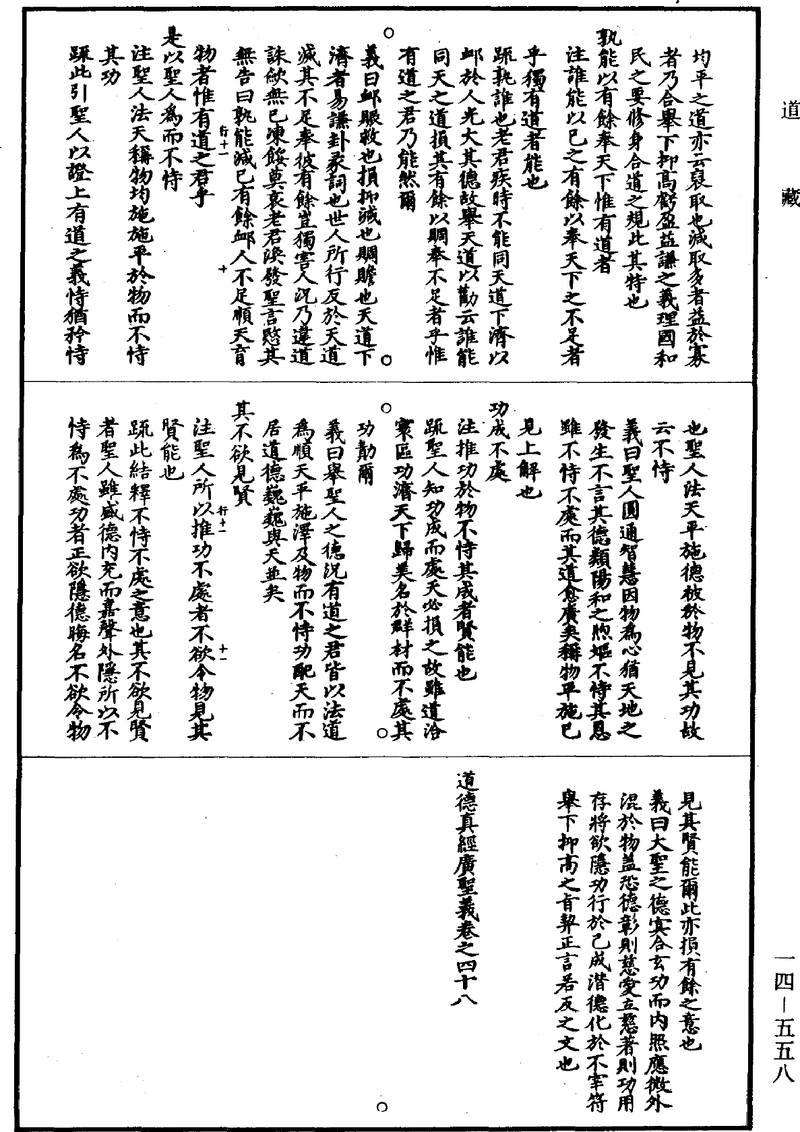 道藏
均平之道亦云裒取也減取多者益於寡
者乃合舉下抑高虧盈益謙之義理國和
民之要修身合道之規此其特也
孰能以有餘奉天下惟有道者
注誰能以己之有餘以奉天下之不足者
乎獨有道者能也
疏孰誰也老君疾時不能同天道下濟以
卹於人光大其德故舉天道以勸云誰能
同天之道損其有餘以賙奉不足者乎惟
有道之君乃能然爾
義曰卹賑救也損抑減也賙贍也天道下
濟者易謙卦彖詞也世人所行反於天道
減其不足奉彼有餘豈獨害人況乃違道
誅歛無已凍餒莫哀老君渙發聖言愍其
無告曰孰能減已有餘卹人不足順天育
行十一 十
物者惟有道之君乎
是以聖人為而不恃
注聖人法天稱物均施施平於物而不恃
其功
疏此引聖人以證上有道之義恃猶矜恃
也聖人法天平施德被於物不見其功故
云不恃
義曰聖人圓通智慧因物為心猶天地之
發生不言其德類陽和之煦嫗不恃其恩
雖不恃不處而其道愈廣矣稱物平施已
見上解也
功成不處
注推功於物不恃其成者賢能也
疏聖人知功成而處天必損之故雖道洽
寰區功濟天下歸美名於群材而不處其
功勣爾
義曰舉聖人之德況有道之君皆以法道
為順天平施澤及物而不恃功配天而不
居道德巍巍與天並矣
其不欲見賢
行十一 十一
注聖人所以推功不處者不欲令物見其
賢能也
疏此結釋不恃不處之意也其不欲見賢
者聖人雖盛德內充而嘉聲外隱所以不
恃為不處功者正欲隱德晦名不欲令物
見其賢能爾此亦損有餘之意也
義曰大聖之德冥合玄功而內照應微外
混於物蓋恐德彰則慈愛立慈著則功用
存將欲隱功行於已成潛德化於不宰符
舉下抑高之旨契正言若反之文也
道德真經廣聖義卷之四十八
一四－五五八